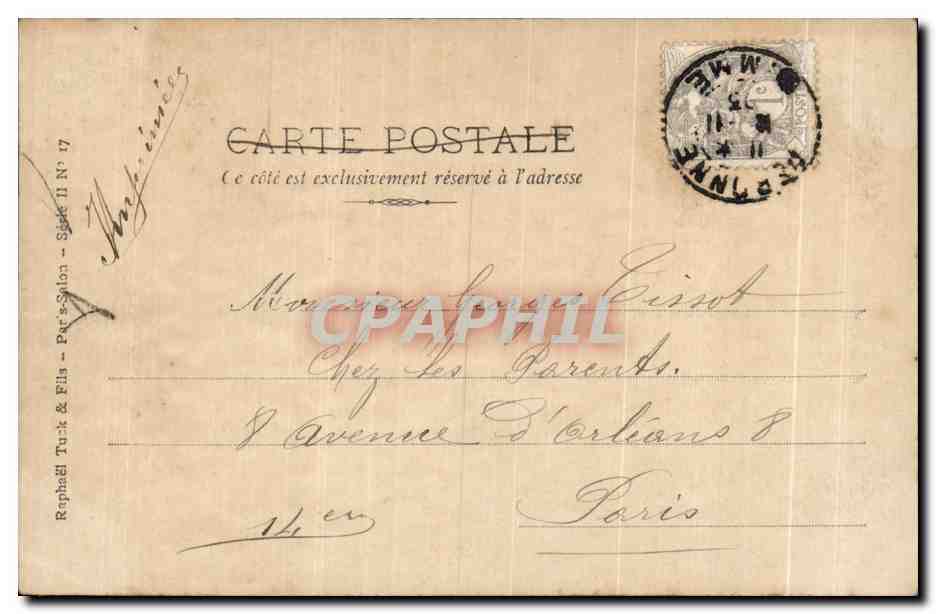 CARTE POSTALE
Ce côté est exclusivement réservé à l'adresse
Imprimés
Raphaël Tuck & Fils — Paris-Salon — Série II Nº 17
Monsieur Georges Tissot
Chez ses Parents.
8 avenue d'Orléans 8
Paris
14em
PERONNE
SOMME
1c
POST
CPAPHIL